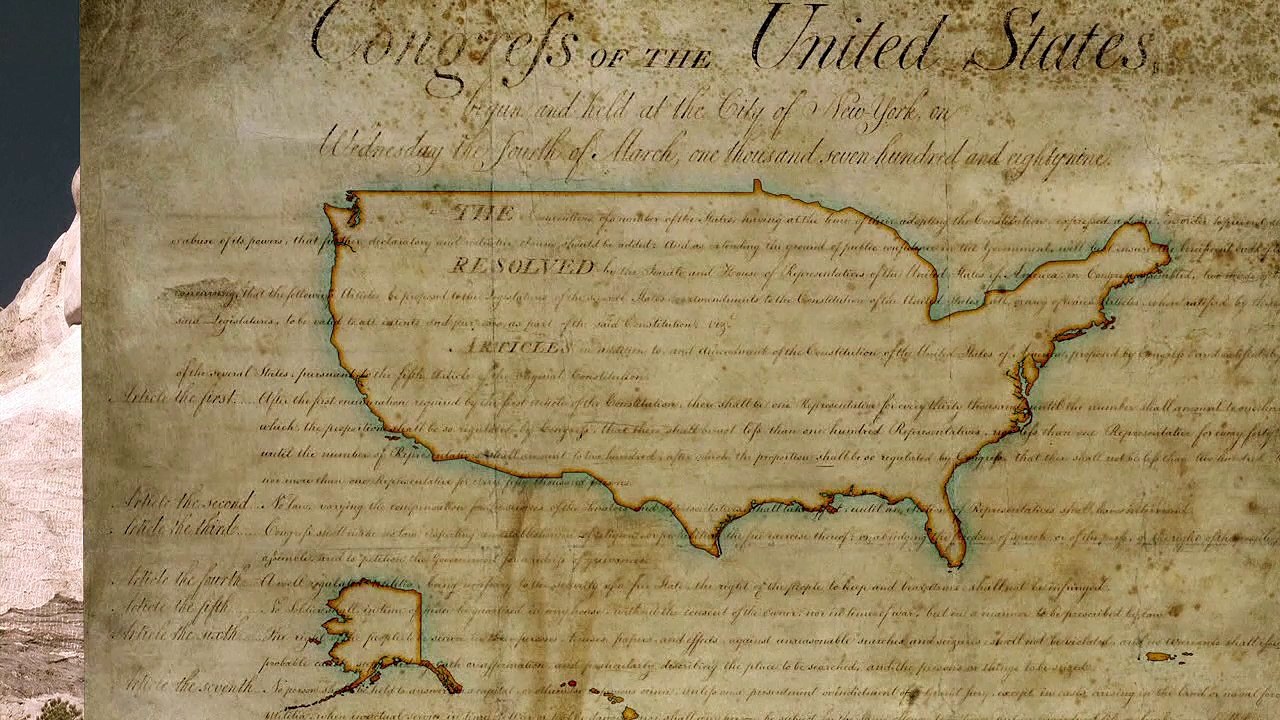 Congreſs OF THE United States,
begun and held at the City of New York, on
Wednesday the fourth of March, one thousand seven hundred and eighty nine.
THE of a number of the States, having at the time of their adopting the Constitution, expressed a
abuse of its powers, that further declaratory and restrictive clauses should be added: And as extending the ground of public confidence in the Government, will best insure the
RESOLVED by the Senate and House of Representatives of the United States of America, in Congress assembled, two
concurring, that the following Articles be proposed to the Legislatures of the several States, as amendments to the Constitution of the United States, all, or any of which Articles, when ratified by
said Legislatures, to be valid to all intents and purposes, as part of the said Constitution; viz.
ARTICLES in addition to, and amendment of the Constitution of the United States of America, proposed by Congress, and ratified
of the several States, pursuant to the fifth Article of the original Constitution.
Article the first. After the first enumeration required by the first Article of the Constitution, there shall be one Representative for every thirty thousand, until the number shall amount to
which, the proportion shall be so regulated by Congress, that there shall be not less than one hundred Representatives, nor less than one Representative for every forty
until the number of Representatives shall amount to two hundred, after which the proportion shall be so regulated by Congress, that there shall not be less than two hundred
nor more than one Representative for every fifty thousand persons.
Article the second. No law, varying the compensation for the services of the Senators and Representatives, shall take effect, until an election of Representatives shall have intervened.
Article the third. Congress shall make no law respecting an establishment of religion, or prohibiting the free exercise thereof; or abridging the freedom of speech, or of the press; or the right of the people
assemble, and to petition the Government for a redress of grievances.
Article the fourth. A well regulated militia, being necessary to the security of a free State, the right of the people to keep and bear arms, shall not be infringed.
Article the fifth. No Soldier shall, in time of peace be quartered in any house, without the consent of the owner, nor in time of war, but in a manner to be prescribed by law.
Article the sixth. The right of the people to be secure in their persons, houses, papers, and effects, against unreasonable searches and seizures, shall not be violated, and no warrants shall
probable cause, oath or affirmation, and particularly describing the place to be searched, and the persons or things to be seized.
Article the seventh. No person shall be held to answer for a capital, or otherwise infamous crime, unless on a presentment or indictment of a grand jury, except in cases arising in the land or naval
Militia, when in actual service in time of War